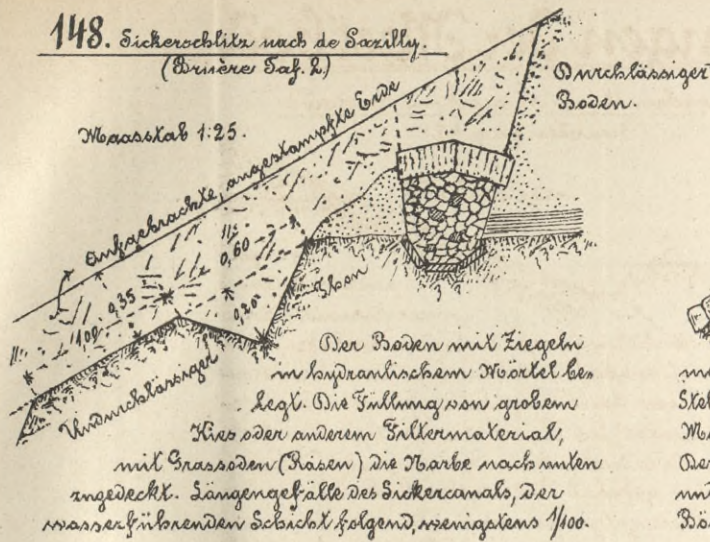 148. Sickerschlitz nach de Sazilly.
(Bruère Taf. 2.)
Durchlässiger
Boden.
Maasstab 1:25.
Aufgebrachte, angestampfte Erde
0,60
0,35
1,00
0,20
Thon
Undurchlässiger
Der Boden mit Ziegeln
in hydraulischem Mörtel be-
legt. Die Füllung von grobem
Kies oder anderem Filtermaterial,
mit Grassoden (Rasen) die Narbe nach unten
zugedeckt. Längengefälle des Sickercanals, der
wasserführenden Schicht folgend, wenigstens 1/100.